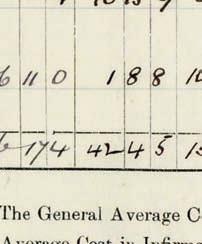 6 11 0 1 8 8 1
6 17 4 42 4 5 1
The General Average C
Average Cost in Infirm